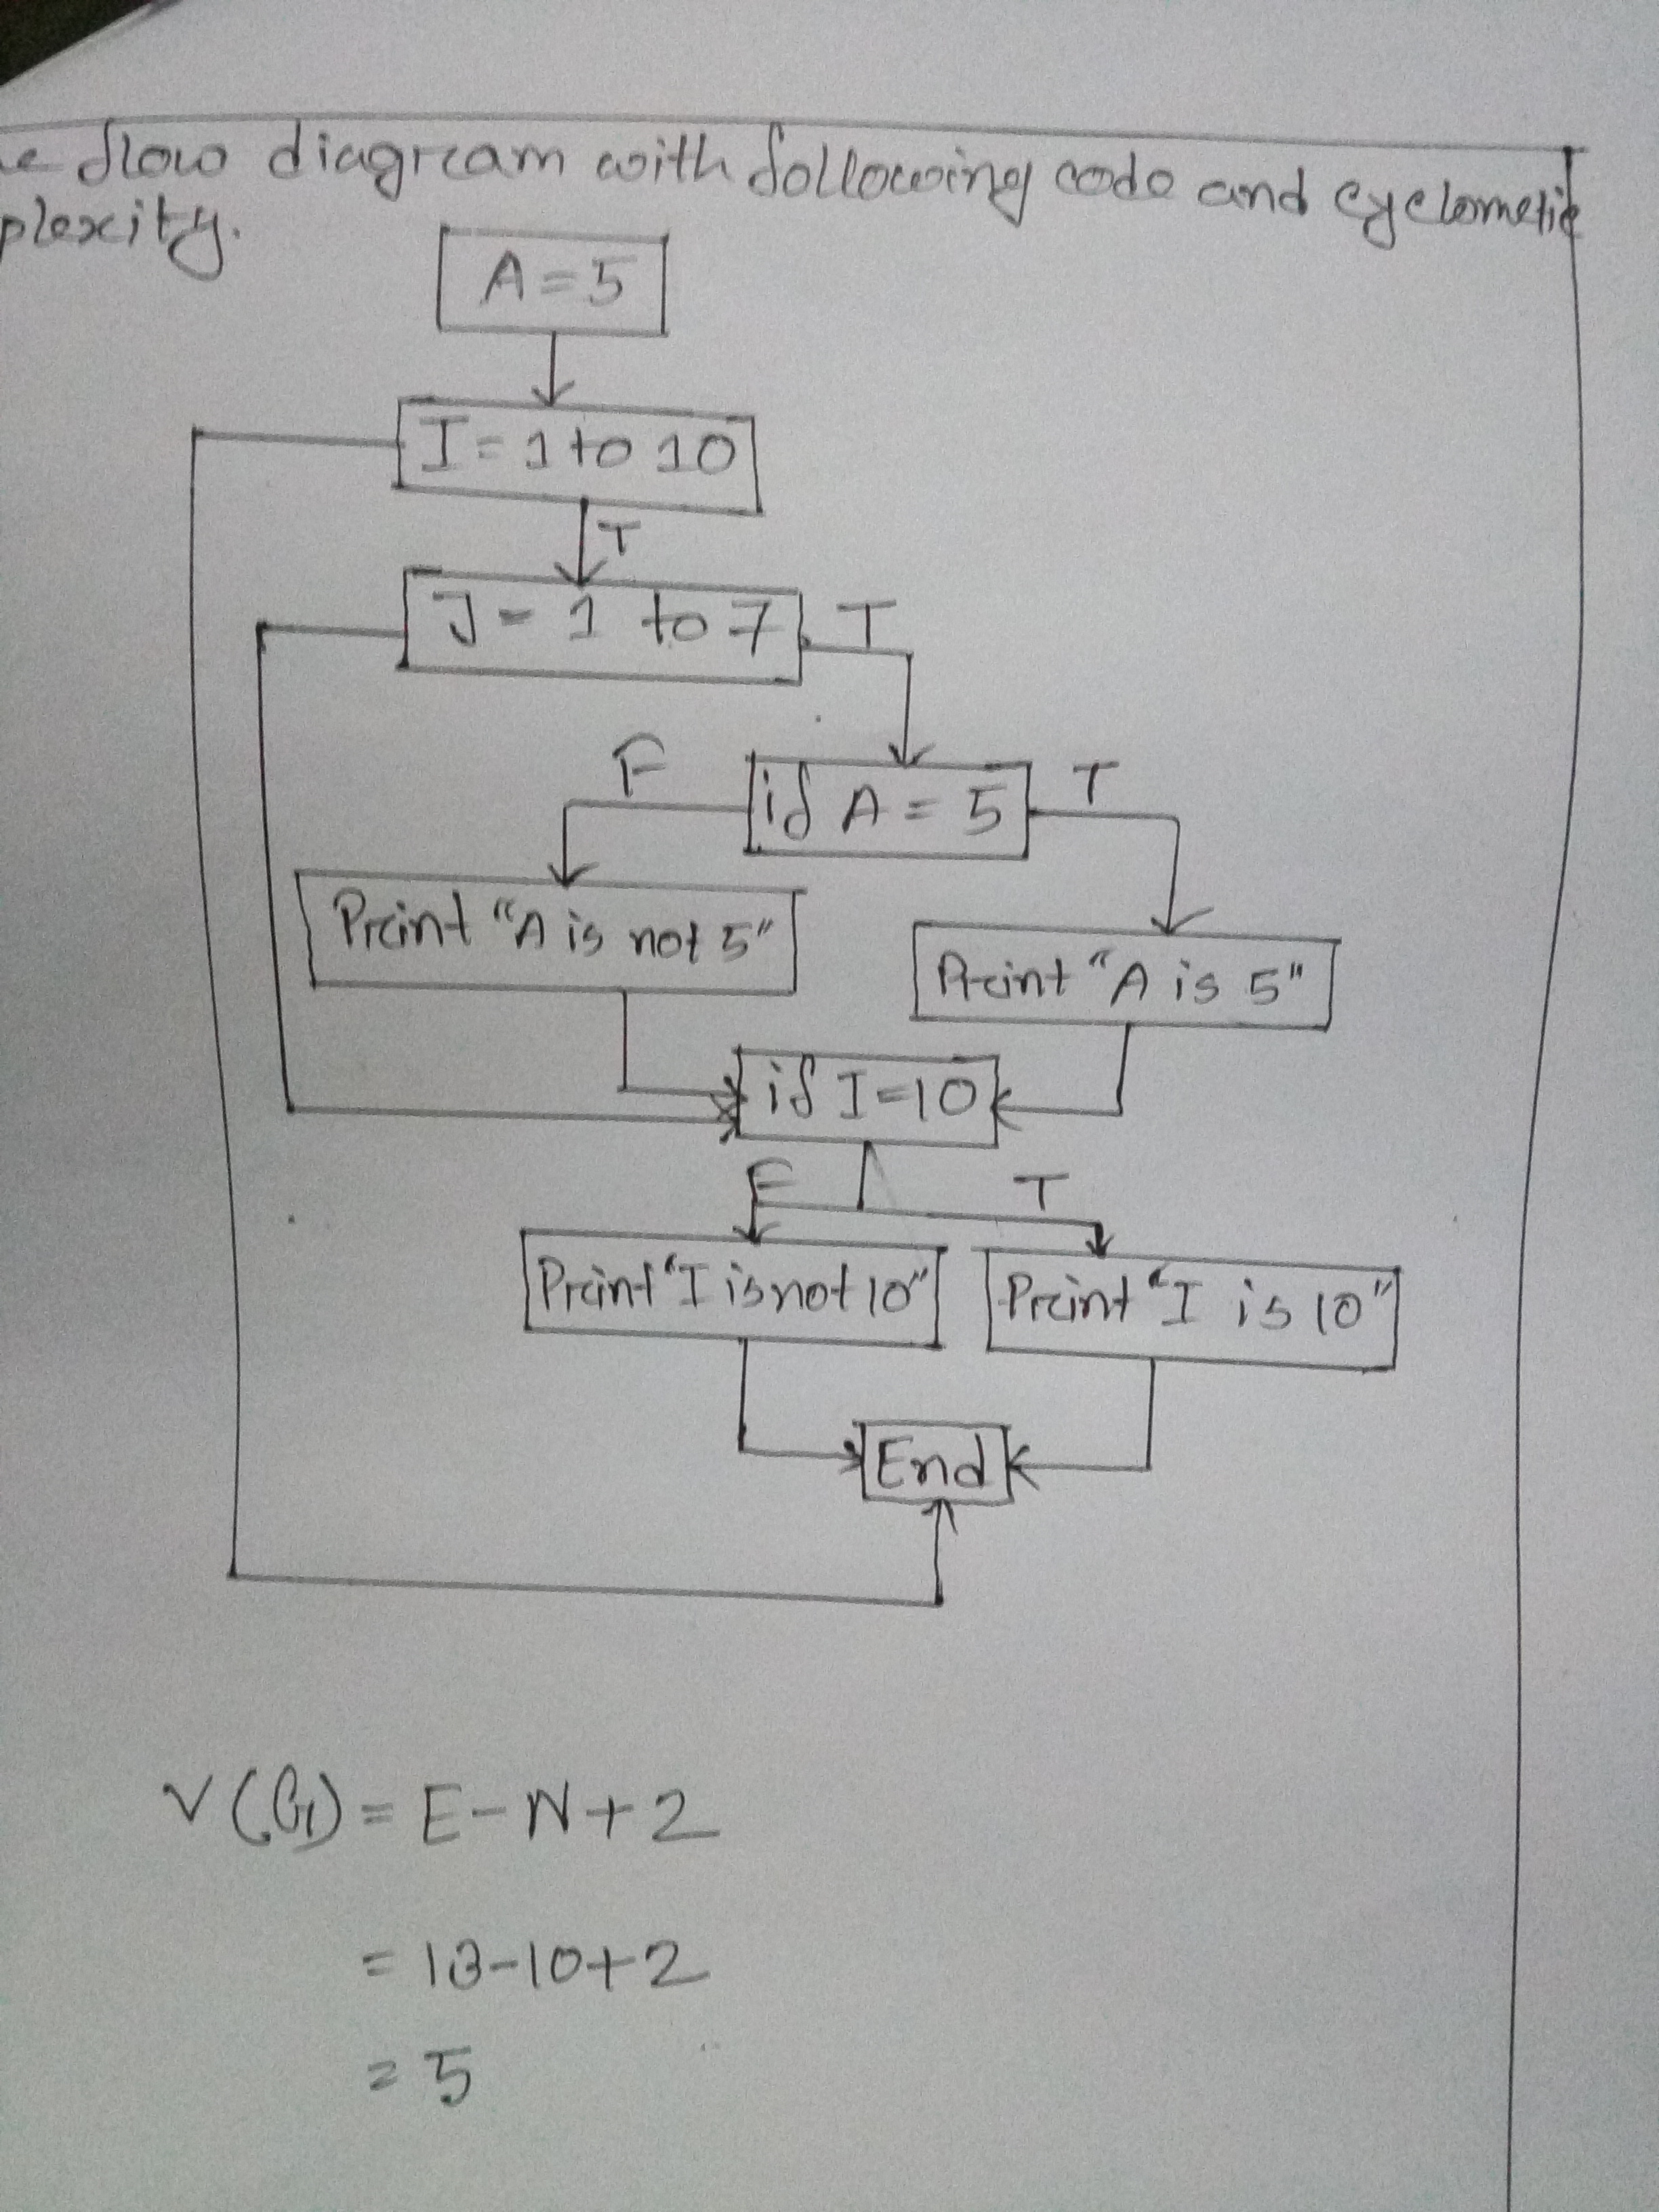 flow diagram with following code and cyclometic
plexity.
A = 5
I = 1 to 10
T
J = 1 to 7 T
F if A = 5 T
Print "A is not 5"
Print "A is 5"
if I = 10
F T
Print "I is not 10" Print "I is 10"
End
V(G) = E - N + 2
= 13 - 10 + 2
= 5